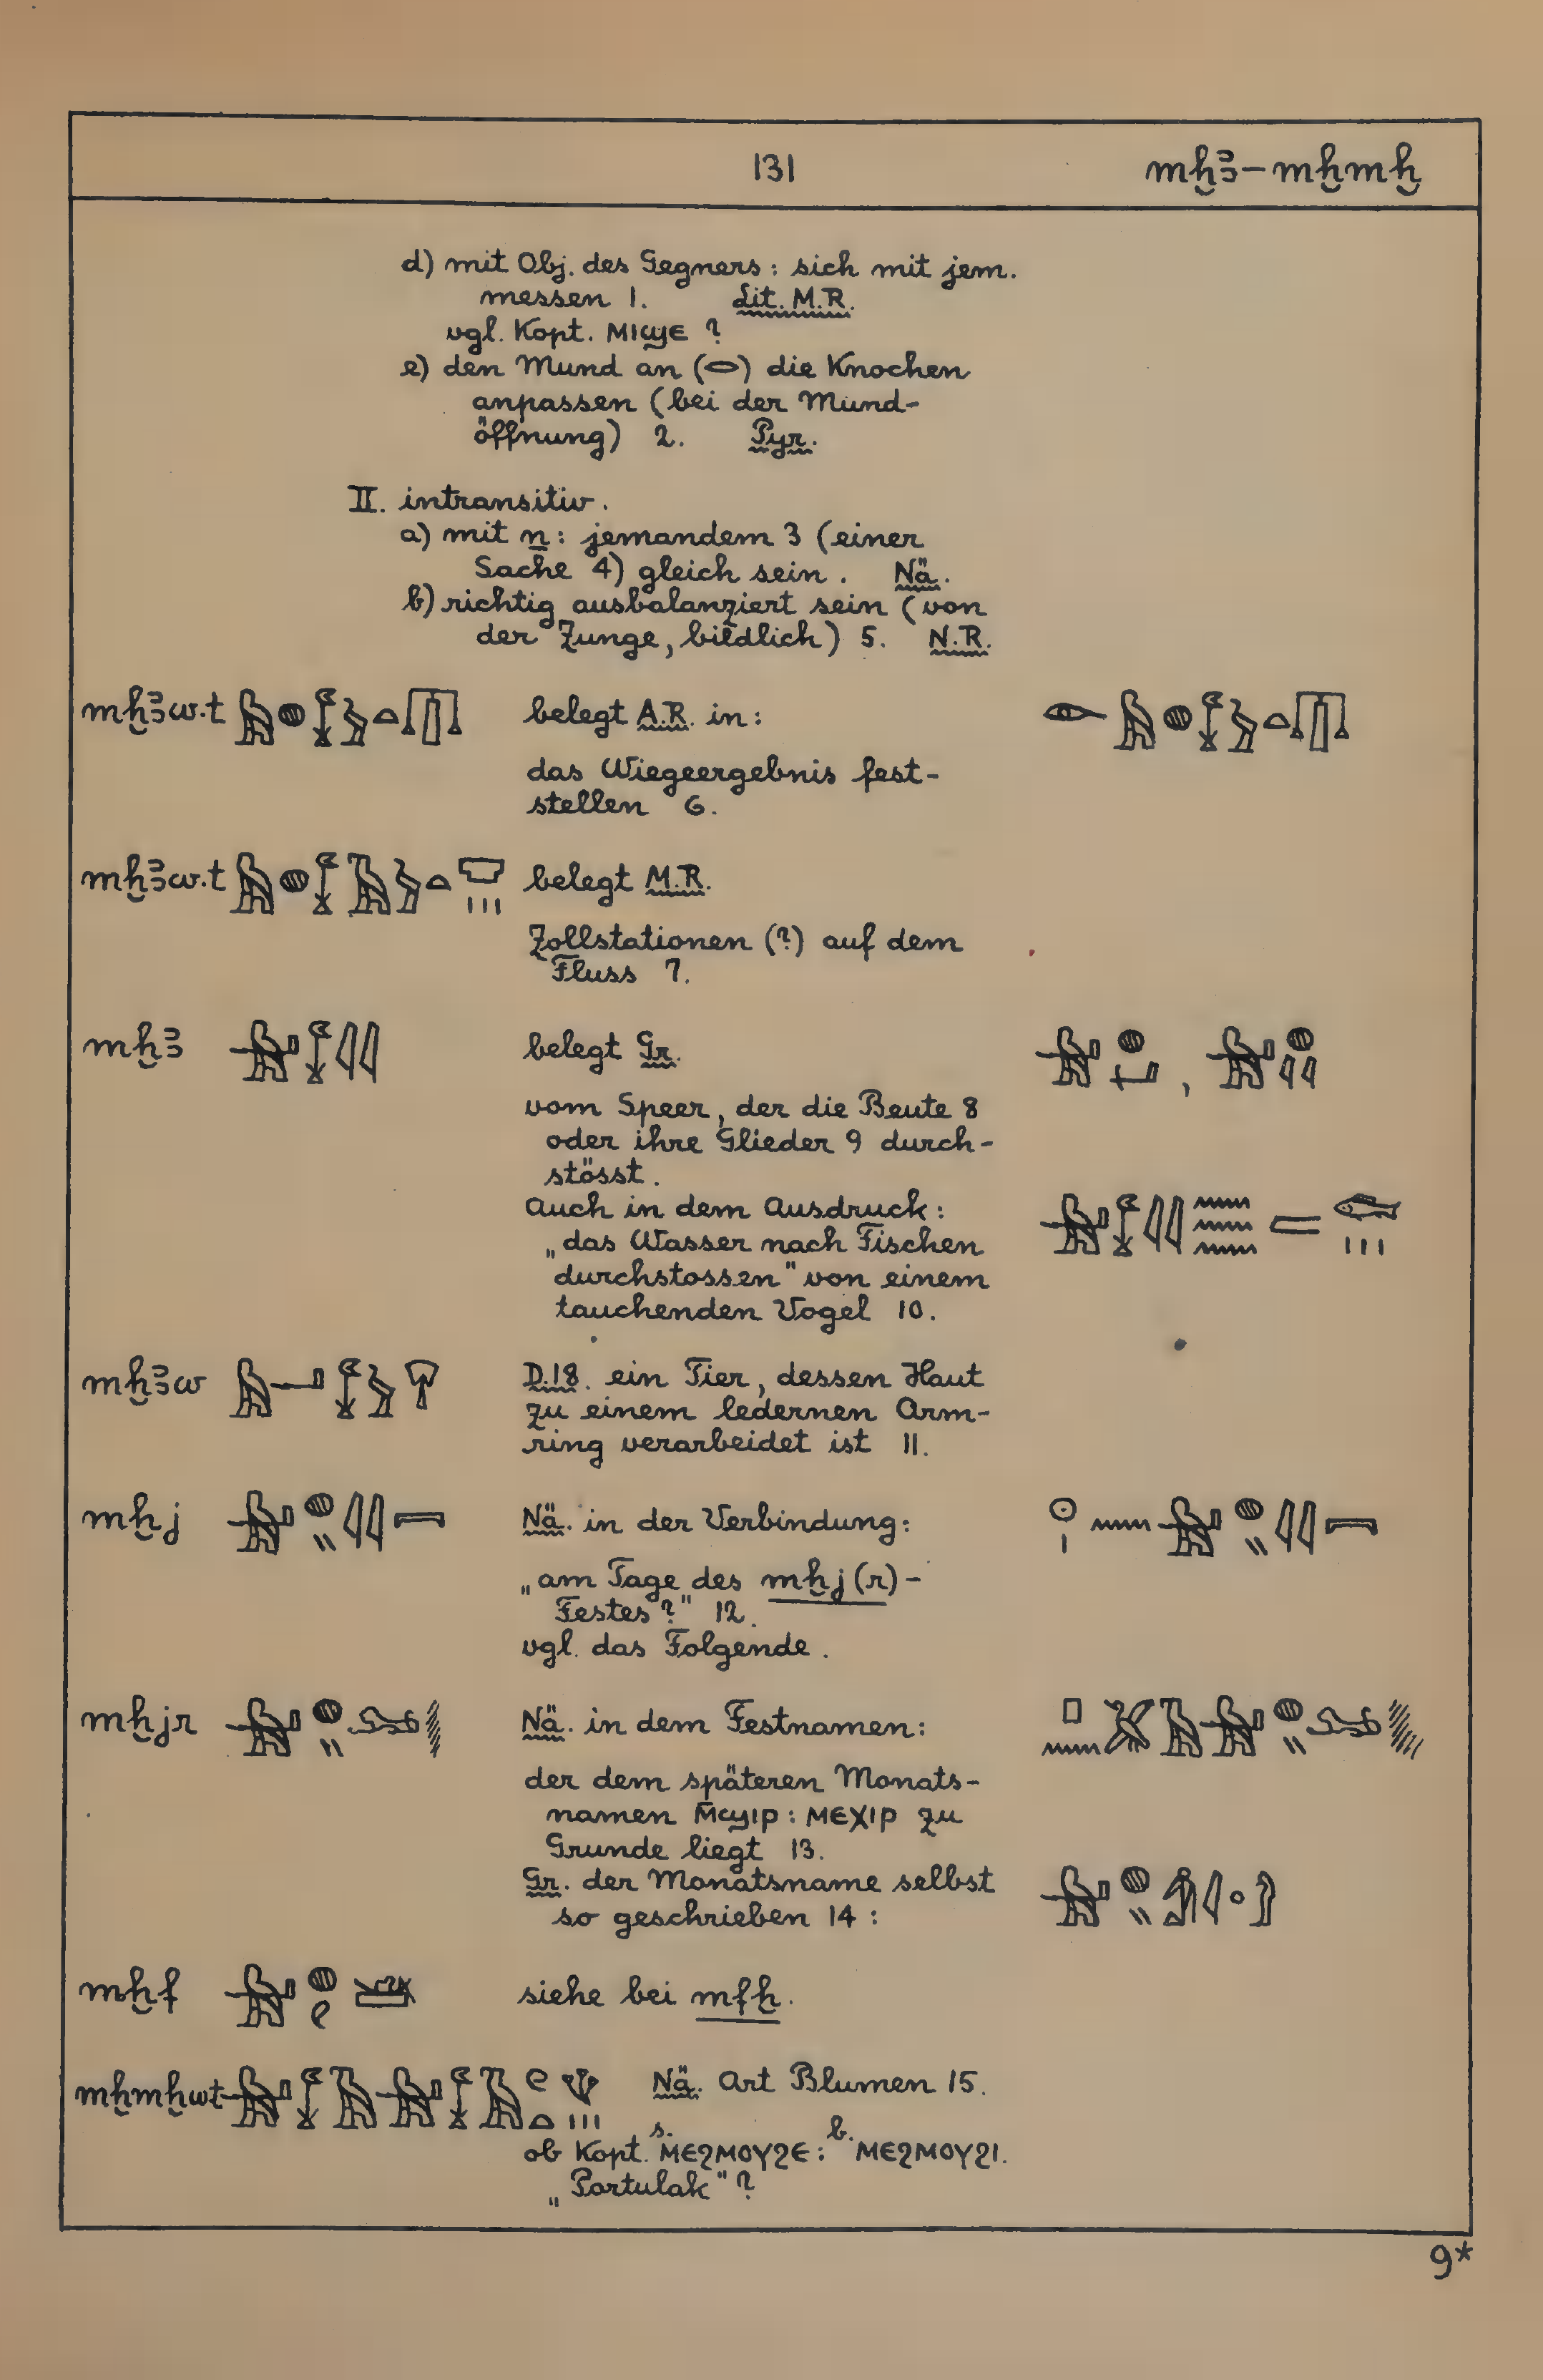 131
mḫꜣ–mḫmḫ
d) mit Obj. des Gegners: sich mit jem.
messen 1. Lit. M.R.
vgl. Kopt. ⲙⲓϣⲉ ?
e) den Mund an (𓂋) die Knochen
anpassen (bei der Mund-
öffnung) 2. Pyr.
II. intransitiv.
a) mit n: jemandem 3 (einer
Sache 4) gleich sein. Nä.
b) richtig ausbalanziert sein (von
der Zunge, bildlich) 5. N.R.
mḫꜣw.t belegt A.R. in:
das Wiegeergebnis fest-
stellen 6.
mḫꜣw.t belegt M.R.
Zollstationen (?) auf dem
Fluss 7.
mḫꜣ belegt Gr.
vom Speer, der die Beute 8
oder ihre Glieder 9 durch-
stösst.
Auch in dem Ausdruck:
„das Wasser nach Fischen
durchstossen" von einem
tauchenden Vogel 10.
mḫꜣw D.18. ein Tier, dessen Haut
zu einem ledernen Arm-
ring verarbeidet ist 11.
mḫj Nä. in der Verbindung:
„am Tage des mḫj(r)-
Festes?" 12.
vgl. das Folgende.
mḫjr Nä. in dem Festnamen:
der dem späteren Monats-
namen ⲙ̄ϣⲓⲣ : ⲙⲉⲭⲓⲣ zu
Grunde liegt 13.
Gr. der Monatsname selbst
so geschrieben 14 :
mḫf siehe bei mfḫ.
mḫmḫwt Nä. Art Blumen 15.
ob Kopt. s. ⲙⲉϩⲙⲟⲩϩⲉ : b. ⲙⲉϩⲙⲟⲩϩⲓ.
„Portulak" ?
9*